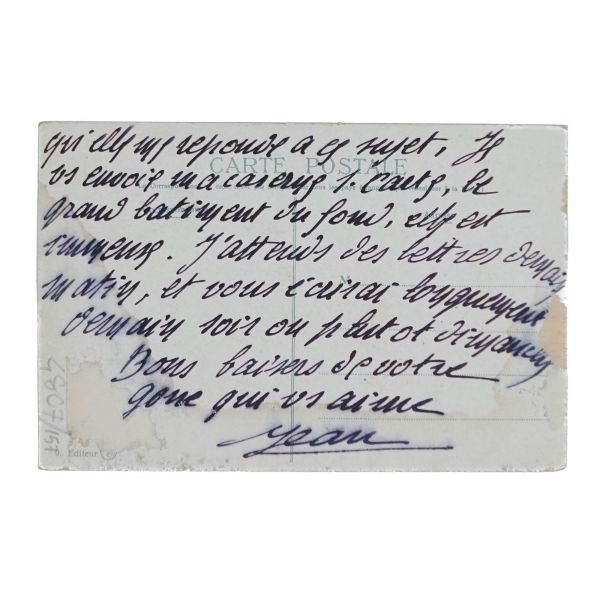 qu'elle me reponde a ce sujet, Je
CARTE POSTALE
vs envoie ma caserne s carte, le
grand batiment du fond, elle est
immense. J'attends des lettres demain
matin, et vous écrirai longuement
demain soir ou plutot dimanche
Bons baisers de votre
gone qui vs aime
Jean
4907/157
D. Editeur